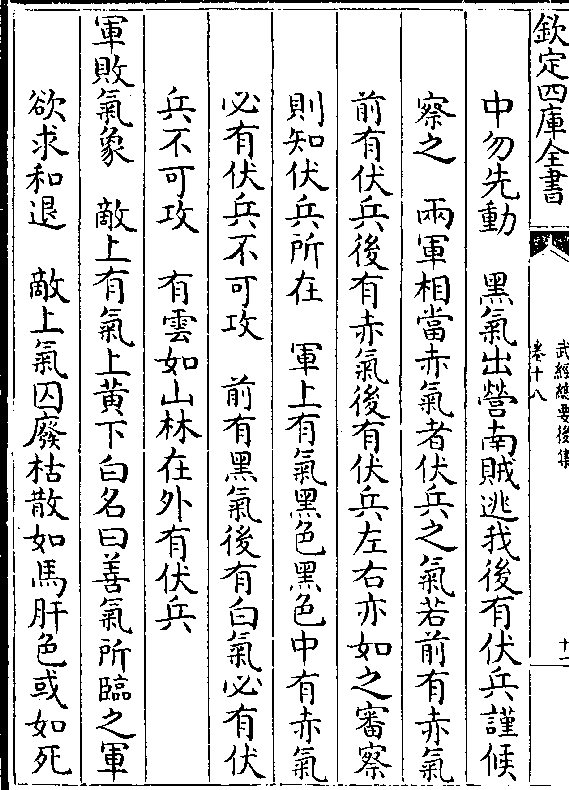 欽定四庫全書
武經總要後集
卷十八
十一
中勿先動　黑氣出營南賊逃我後有伏兵謹候
察之　兩軍相當赤氣者伏兵之氣若前有赤氣
前有伏兵後有赤氣後有伏兵左右亦如之審察
則知伏兵所在　軍上有氣黑色黑色中有赤氣
必有伏兵不可攻　前有黑氣後有白氣必有伏
兵不可攻　有雲如山林在外有伏兵
軍敗氣象　敵上有氣上黃下白名曰善氣所臨之軍
欲求和退　敵上氣囚廢枯散如馬肝色或如死